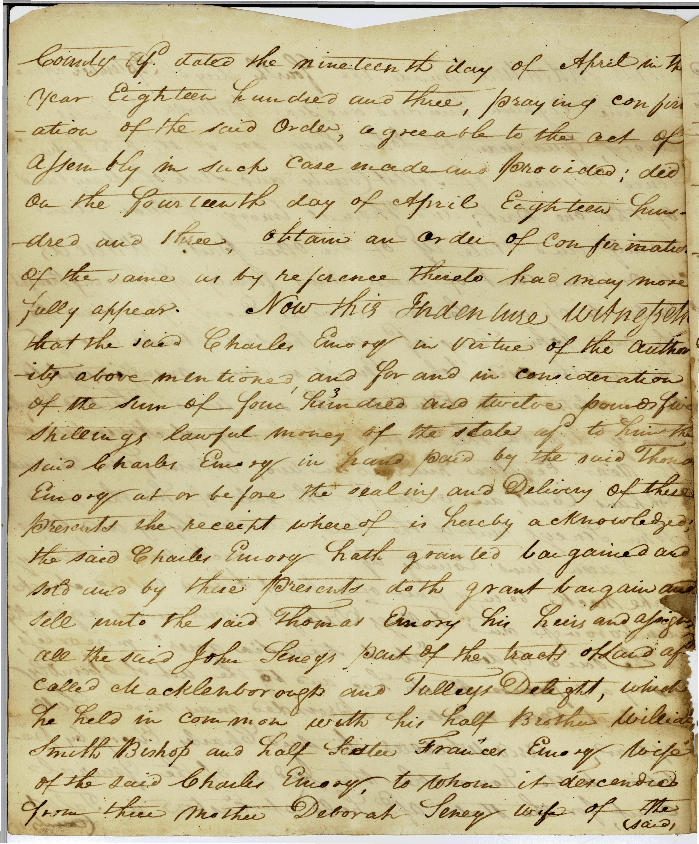 County afd. dated the nineteenth day of April in the
Year Eighteen hundred and three, praying confir
-ation of the said Order, agreeable to the act of
Assembly in such Case made and provided; did
On the fourteenth day of April Eighteen hun-
-dred and three, obtain an order of Confirmation
of the same as by reference thereto had may more
fully appear. Now this Indenture Witnesseth
that the said Charles Emory in Virtue of the author
ity above mentioned, and for and in consideration
of the sum of four hundred and twelve pounds five
shillings lawful money of the state afd. to him the
said Charles Emory in hand paid by the said Thomas
Emory at or before the sealing and Delivery of these
presents the receipt whereof is hereby acknowledged,
the said Charles Emory hath granted bargained and
sold and by these presents doth grant bargain and
sell unto the said Thomas Emory his heirs and assigns
all the said John Seneys part of the tracts of land afd
called Macklenborough and Tulleys Delight, which
he held in common with his half Brother William
Smith Bishop and half Sister Frances Emory Wife
of the said Charles Emory, to whom it descended
from thier Mother Deborah Seney wife of the
(said,